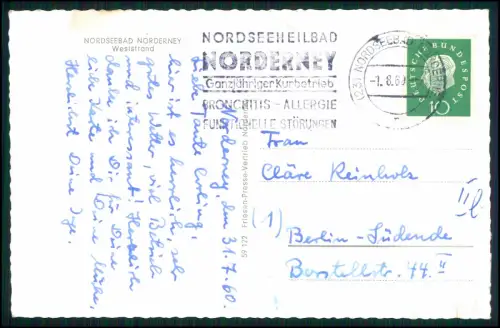 NORDSEEBAD NORDERNEY
Weststrand
NORDSEEHEILBAD
NORDERNEY
Ganzjähriger Kurbetrieb
BRONCHITIS - ALLERGIE
FUNKTIONELLE STÖRUNGEN
(23) NORDSEEBAD
-1. 8. 60
DEUTSCHE BUNDESPOST
10
59 123 Friesen-Presse-Vertrieb Norden
Norderney, den 31.7.60.
Liebe Tante
hier ist es herrlich, sehr
gutes Wetter, viel Betrieb
und interessant! Herzlich
danke ich Dir für Deine
liebe Karte und Deine Mühe.
Herzlichst Deine Inge.
Frau
Cläre Reinholz
(1) Berlin-Südende
Borstellstr. 44 II